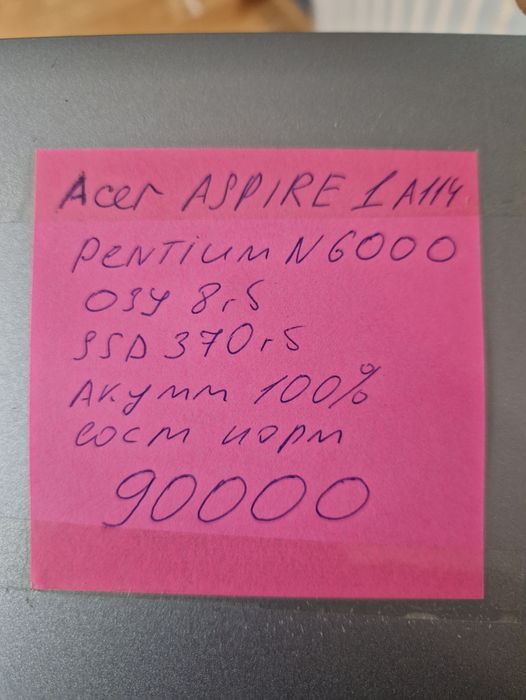 Acer ASPIRE 1 A114
PENTIUM N6000
ОЗУ 8гб
SSD 370гб
Акумм 100%
сост норм
90000